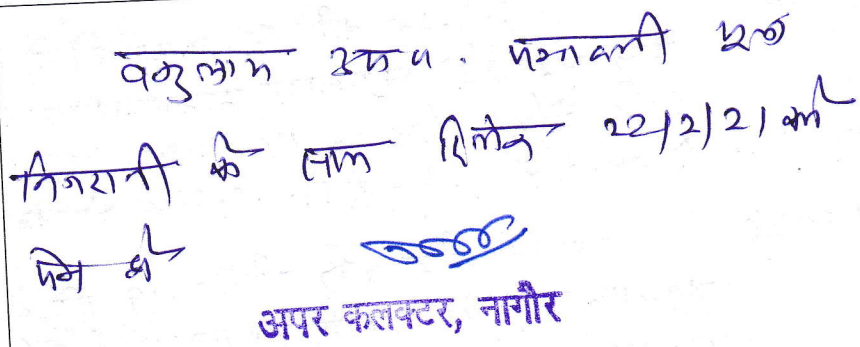 वकुलाय उभय . पत्रावली मूल
निगरानी के साथ दिनांक 22/2/21 को
पेश हो
अपर कलक्टर, नागौर